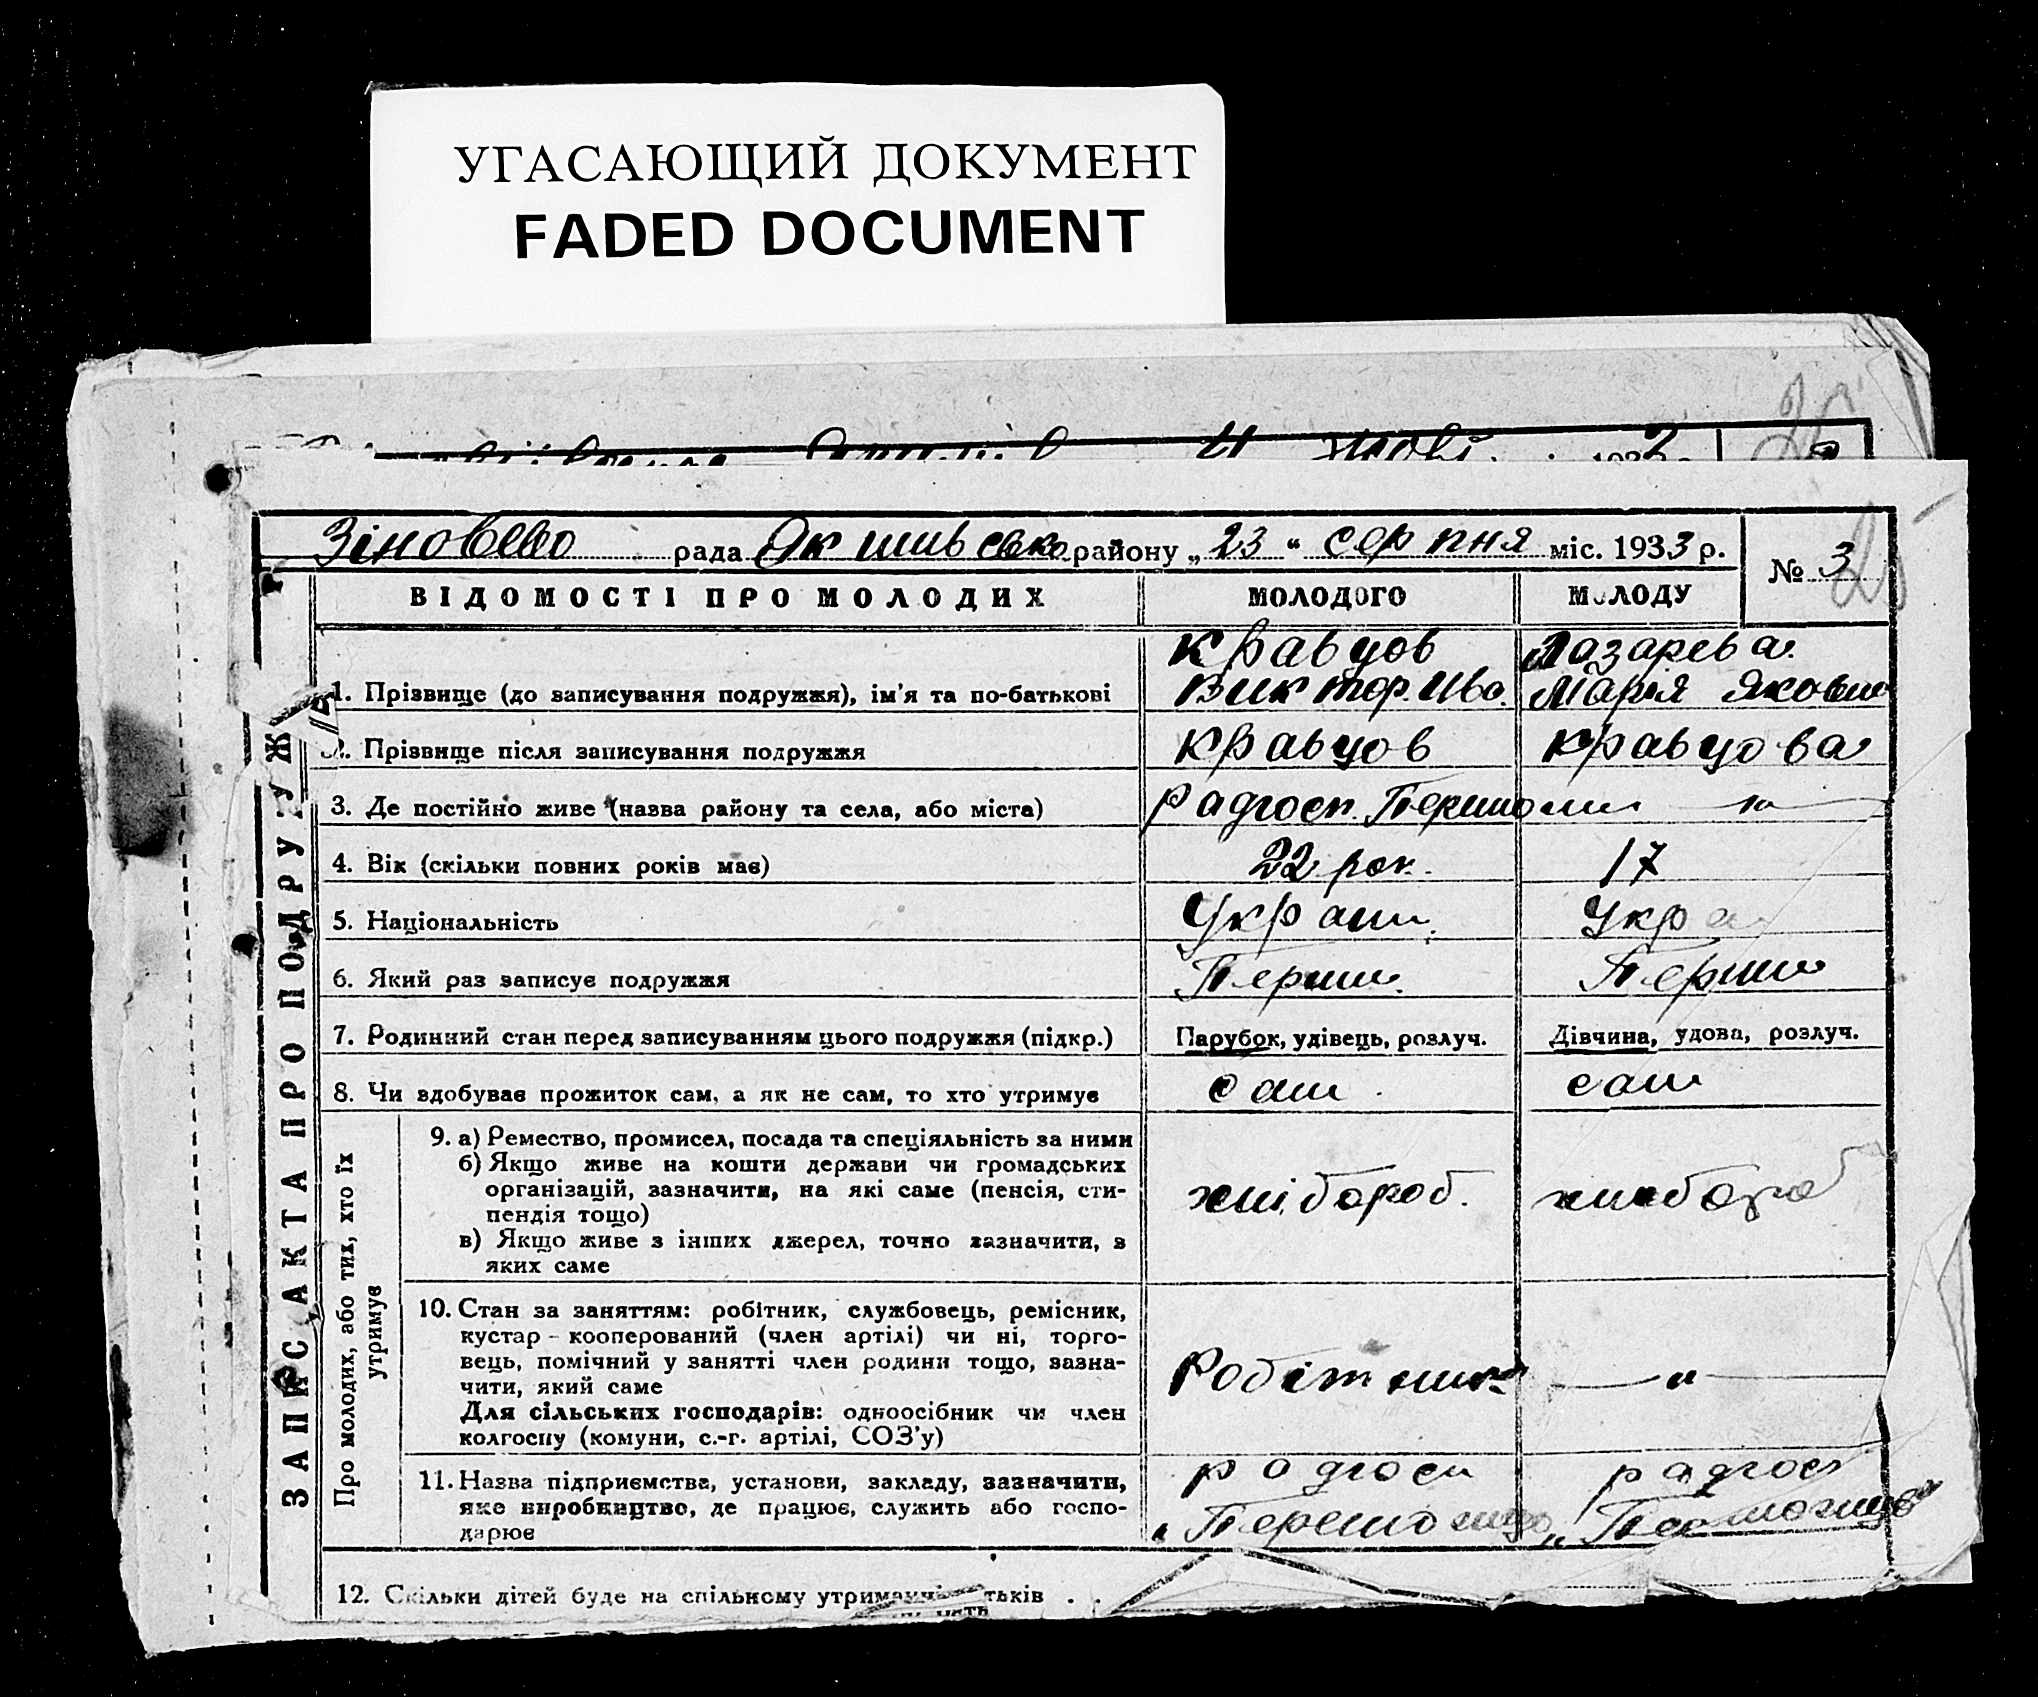 УГАСАЮЩИЙ ДОКУМЕНТ
FADED DOCUMENT
Зіновево рада Якимівсько району „23“ серпня міс. 1933 р.
№ 3
25
ЗАПИС АКТА ПРО ПОДРУЖ
ВІДОМОСТІ ПРО МОЛОДИХ МОЛОДОГО МОЛОДУ
Кравцов Лазарева
1. Прізвище (до записування подружжя), ім'я та по-батькові Виктор. Ива. Марія Яковли
2. Прізвище після записування подружжя Кравцов Кравцова
3. Де постійно живе (назва району та села, або міста) Радгосп. — „ —
4. Вік (скільки повних років має) 22 рок. 17
5. Національність Украин. Укра
6. Який раз записує подружжя Перши. Перши
7. Родинний стан перед записуванням цього подружжя (підкр.) Парубок, удівець, розлуч. Дівчина, удова, розлуч.
8. Чи здобуває прожиток сам, а як не сам, то хто утримує сам. сам
Про молодих, або тих, хто їх
утримує
9. а) Ремество, промисел, посада та спеціяльність за ними
б) Якщо живе на кошти держави чи громадських
організацій, зазначити, на які саме (пенсія, сти-
пендія тощо) хлібороб. хлебороб
в) Якщо живе з інших джерел, точно зазначити, з
яких саме
10. Стан за заняттям: робітник, службовець, ремісник,
кустар - кооперований (член артілі) чи ні, торго-
вець, помічний у занятті член родини тощо, зазна-
чити, який саме Робітник — „ —
Для сільських господарів: одноосібник чи член
колгоспу (комуни, с.-г. артілі, СОЗ'у)
11. Назва підприємства, установи, закладу, зазначити, радгосп радгосп
яке виробництво, де працює, служить або госпо-
дарює
12. Скільки дітей буде на спільному утриманні тьків . .